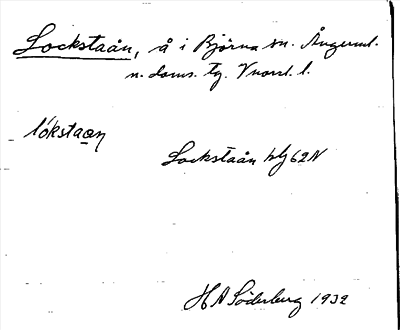 Lockstaån, å i Björna sn. Ångerml.
n. doms. tg. Vnorrl. l.
lókstaɑn
Lockstaån blg 62N
H A Söderberg 1932